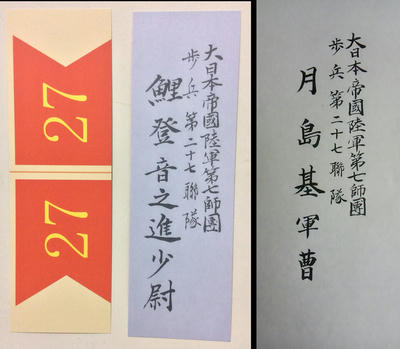 27
27
大日本帝國陸軍第七師團
歩兵第二十七聯隊
鯉登音之進少尉
大日本帝國陸軍第七師團
歩兵第二十七聯隊
月島基軍曹